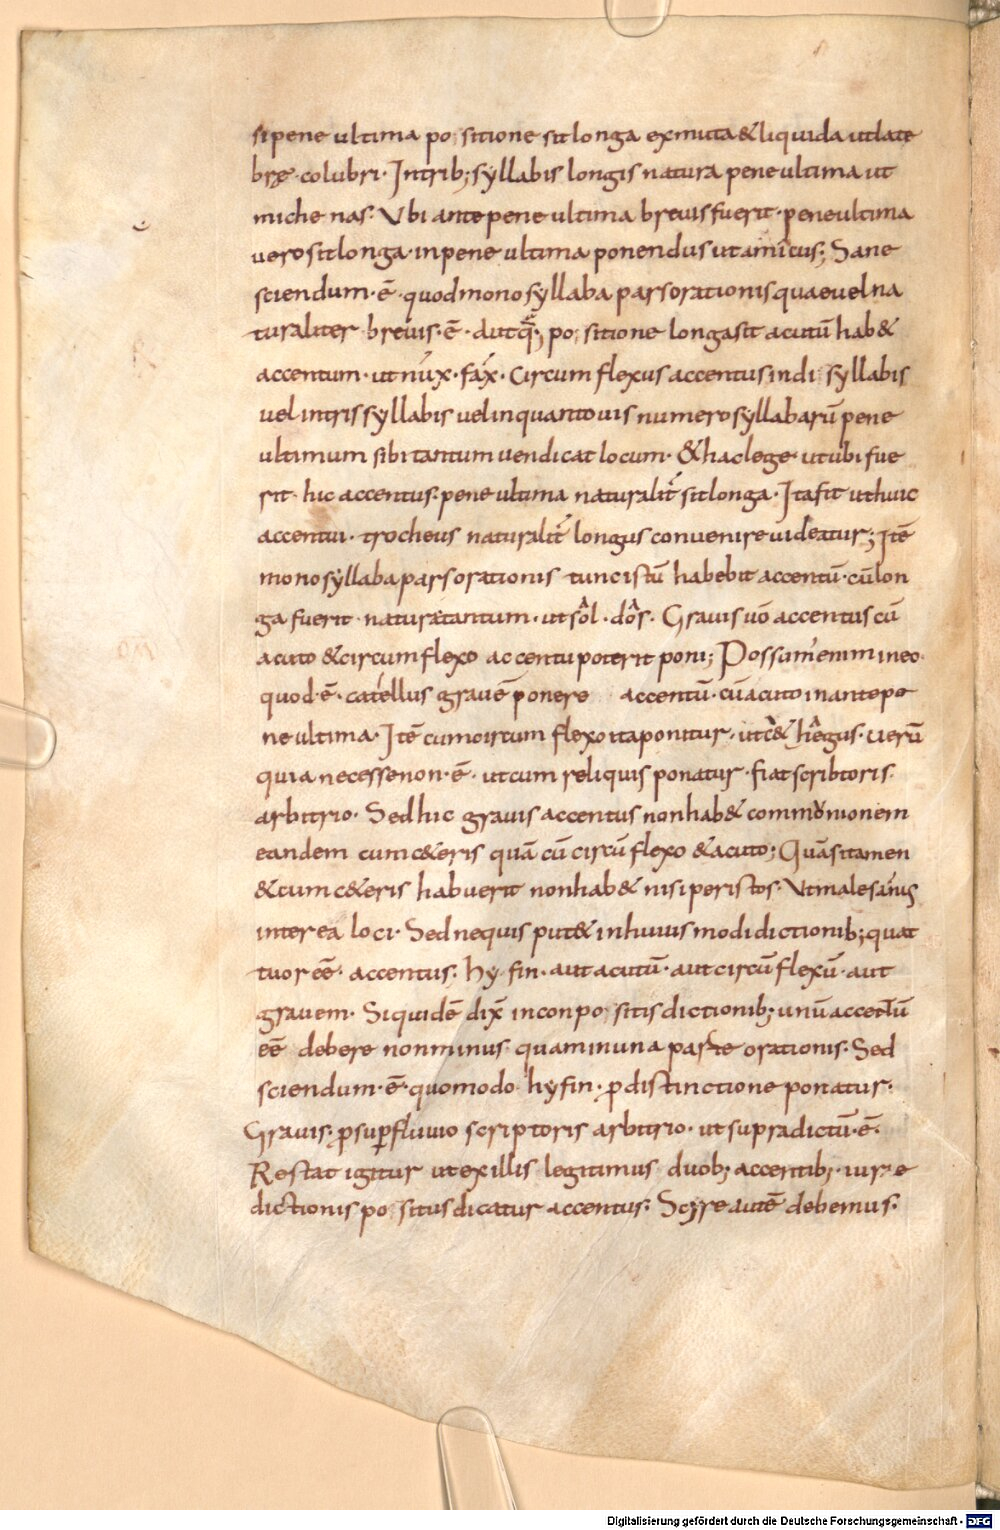 si pene ultima positione sit longa ex muta & liquida ut late
brę · colubri · In trib; syllabis longis natura pene ultima ut
miche nas · Ubi ante pene ultima brevis fuerit · pene ultima
vero sit longa · in pene ultima ponendus ut amîcus; Sane
sciendum · ē · quod monosyllaba pars orationis quae vel na
turaliter brevis · ē · aut positione longa sit acutū hab&
accentum · ut núx · fáx · Circumflexus accentus in disyllabis
vel in trissyllabis vel in quanto vis numero syllabarū pene
ultimum sibi tantum vendicat locum · & hac lege · ut ubi fue
rit · hic accentus · pene ultima naturalit̄ sit longa · Ita fit ut huic
accentui · trocheus naturalit̄ longus convenire videatur; Itē
monosyllaba pars orationis tunc istū habebit accentū · cū lon
ga fuerit · natura tantum · ut sôl · dôs · Gravis vō accentus cū
acuto & circumflexo accentu poterit poni; Possum enim in eo
quod · ē · catéllus gravē ponere accentū · cū acuto in ante pe
ne ultima · Itē cum circumflexo ita ponitur · ut c& hêgus · verū
quia necesse non · ē · ut cum reliquis ponatur · fiat scribtoris
arbitrio · Sed hic gravis accentus non hab& communionem
eandem cum c&eris quā cū circūflexo & acuto; Quāsi tamen
& cum c&eris habuerit non hab& nisi per istos · Ut male sánus
interea loci · Sed nequis put& in huius modi dictionib; quat
tuor eē · accentus · hyfin · aut acutū · aut circūflexū · aut
gravem · Siquidē dix̄ in conpositis dictionib; unū accentū
eē debere non minus quam in una parte orationis · Sed
sciendum · ē · quomodo hyfin · p distinctione ponatur ·
Gravis · p supfluuo scriptoris arbitrio · ut supra dictū · ē ·
Restat igitur ut ex illis legitimus duob; accentib; iure
dictionis positus dicatur accentus · Scire autē debemus ·
Digitalisierung gefördert durch die Deutsche Forschungsgemeinschaft - DFG